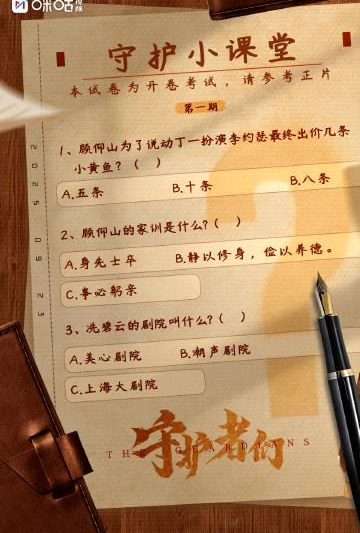 咪咕视频
守护小课堂
本试卷为开卷考试，请参考正片
第一期
1、顾仰山为了说动丁一扮演李约瑟最终出价几条
小黄鱼？（ ）
A.五条 B.十条 B.八条
2、顾仰山的家训是什么?( )
A.身先士卒 B.静以修身，俭以养德。
C.事必躬亲
3、冼碧云的剧院叫什么?( )
A.美心剧院 B.潮声剧院
C.上海大剧院
守护者们
THE GUARDIANS
2025 09 23